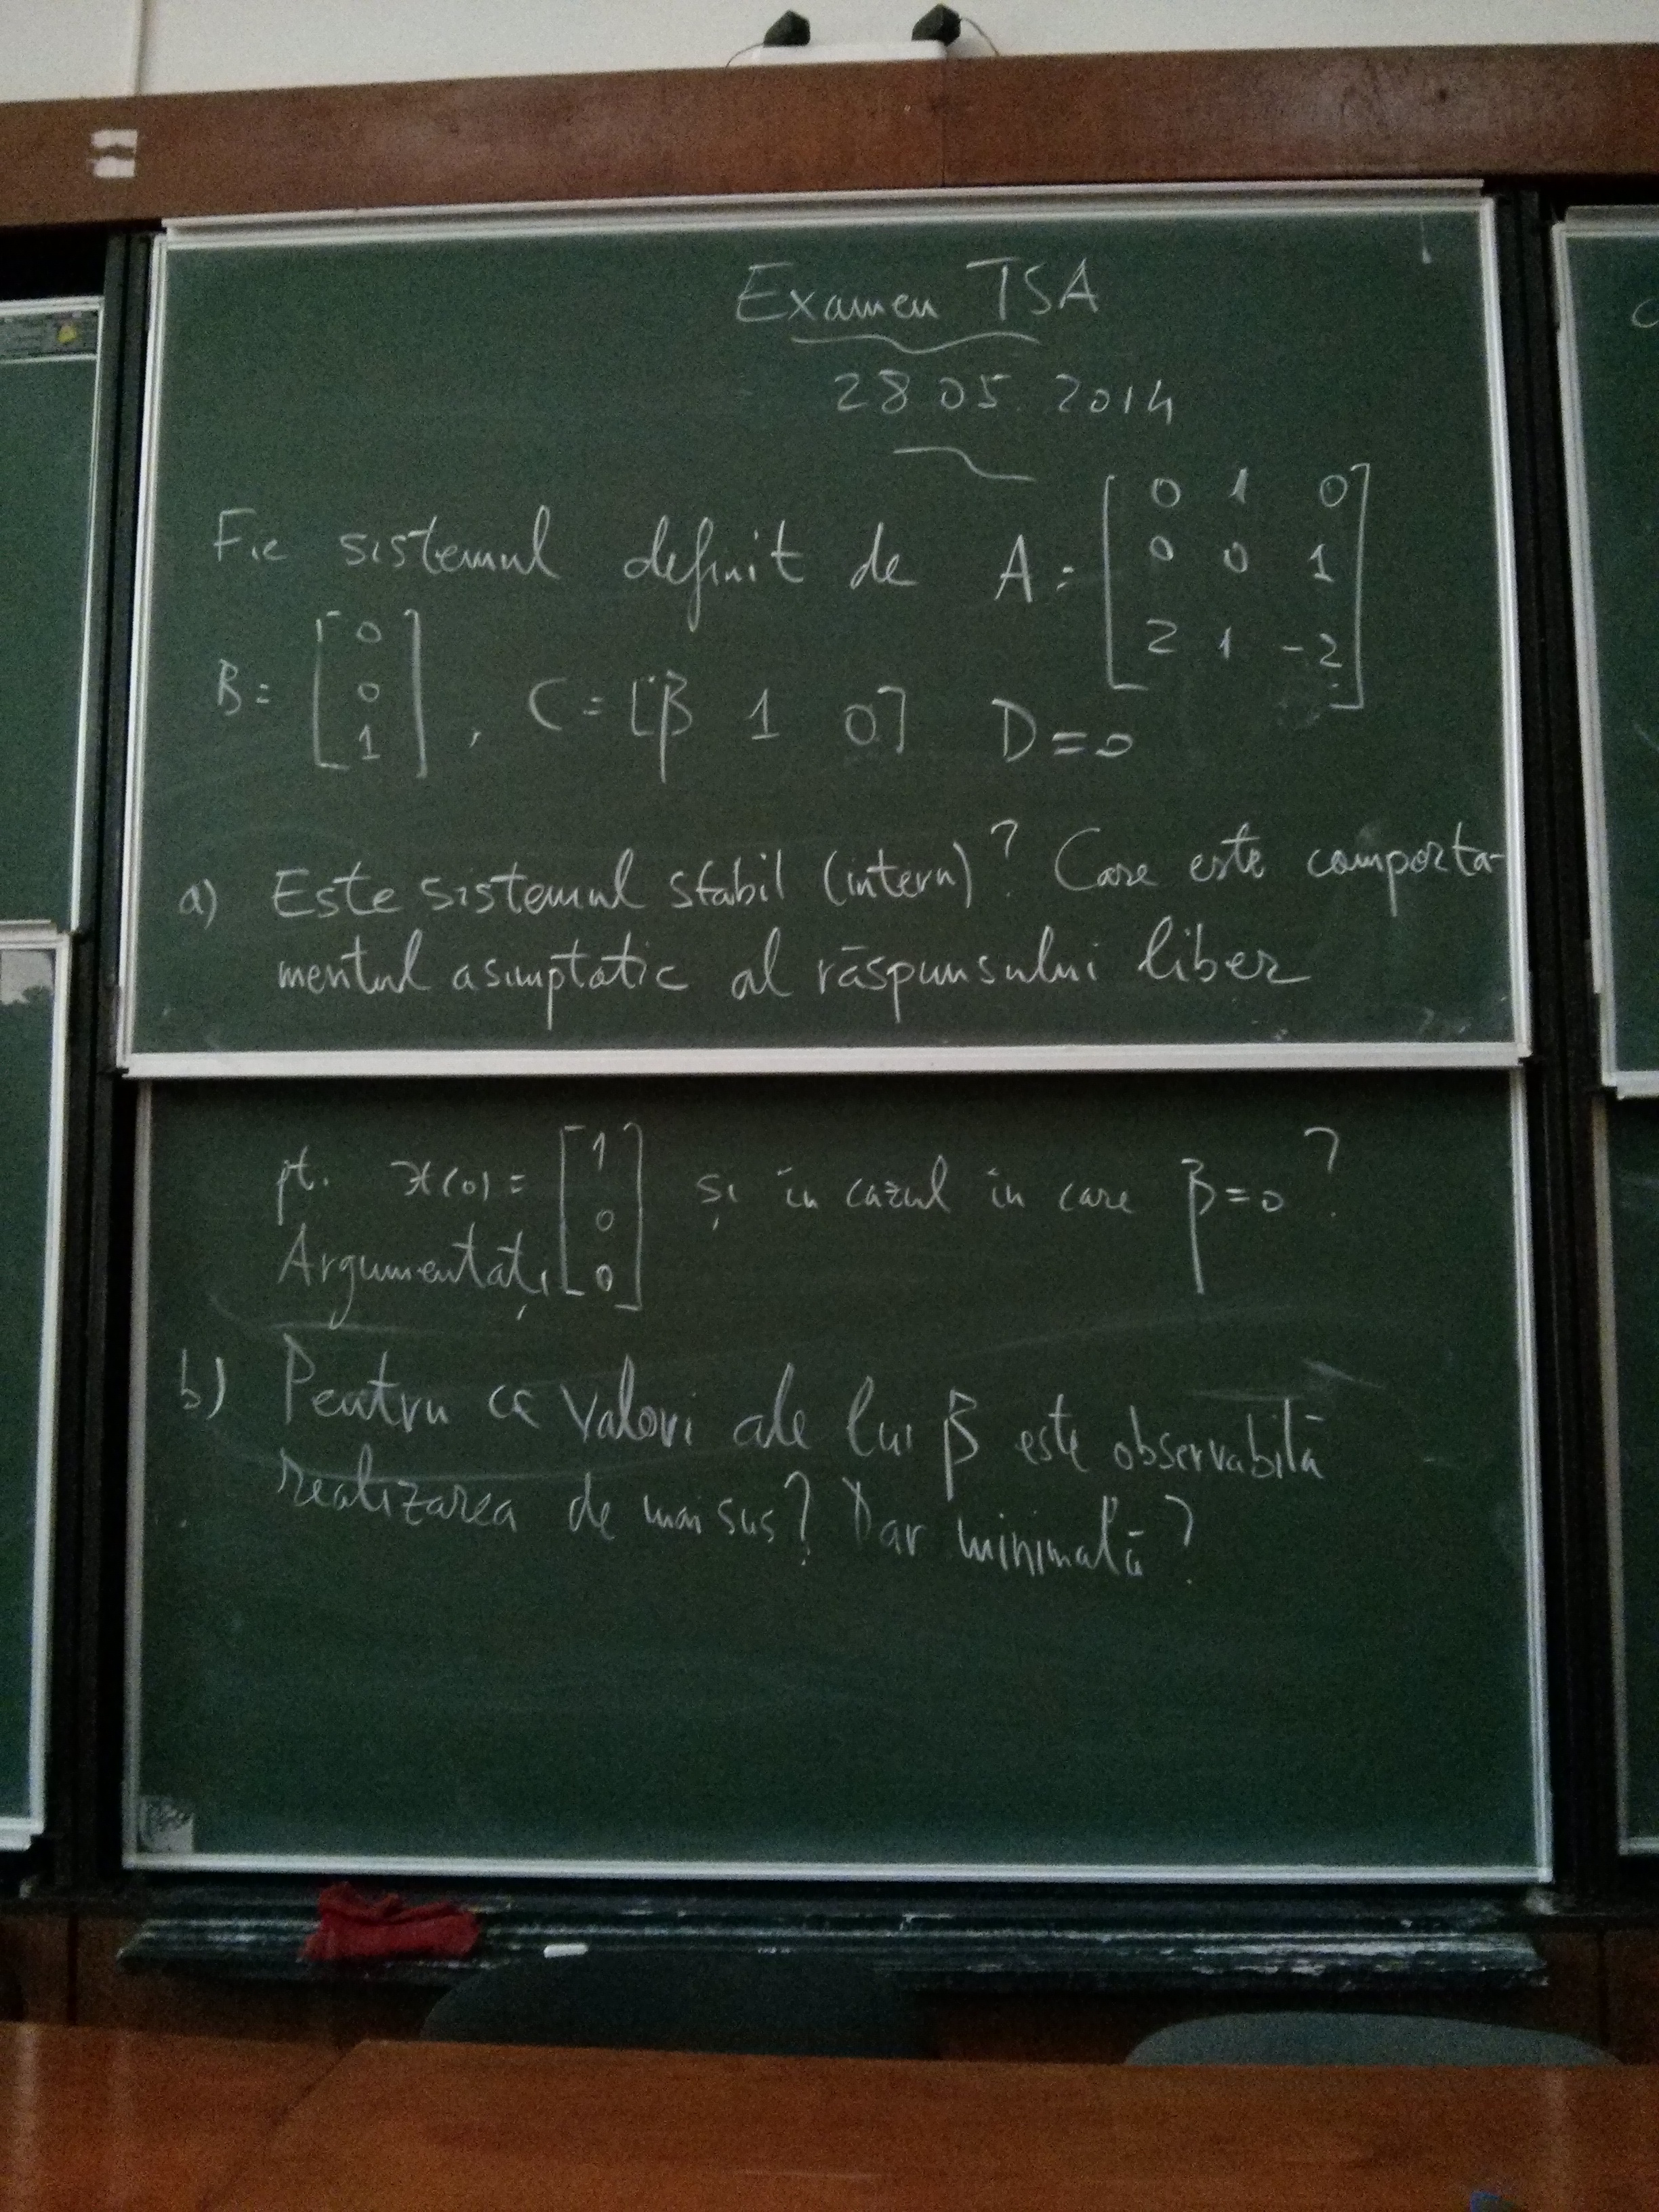 Examen TSA
28.05.2014
Fie sistemul definit de A = [0 1 0; 0 0 1; 2 1 -2]
B = [0; 0; 1], C = [β 1 0] D = 0
a) Este sistemul stabil (intern)? Care este comporta-
mentul asimptotic al răspunsului liber
pt. x(0) = [1; 0; 0] și în cazul în care β = 0?
Argumentați
b) Pentru ce valori ale lui β este observabilă
realizarea de mai sus? Dar minimală?